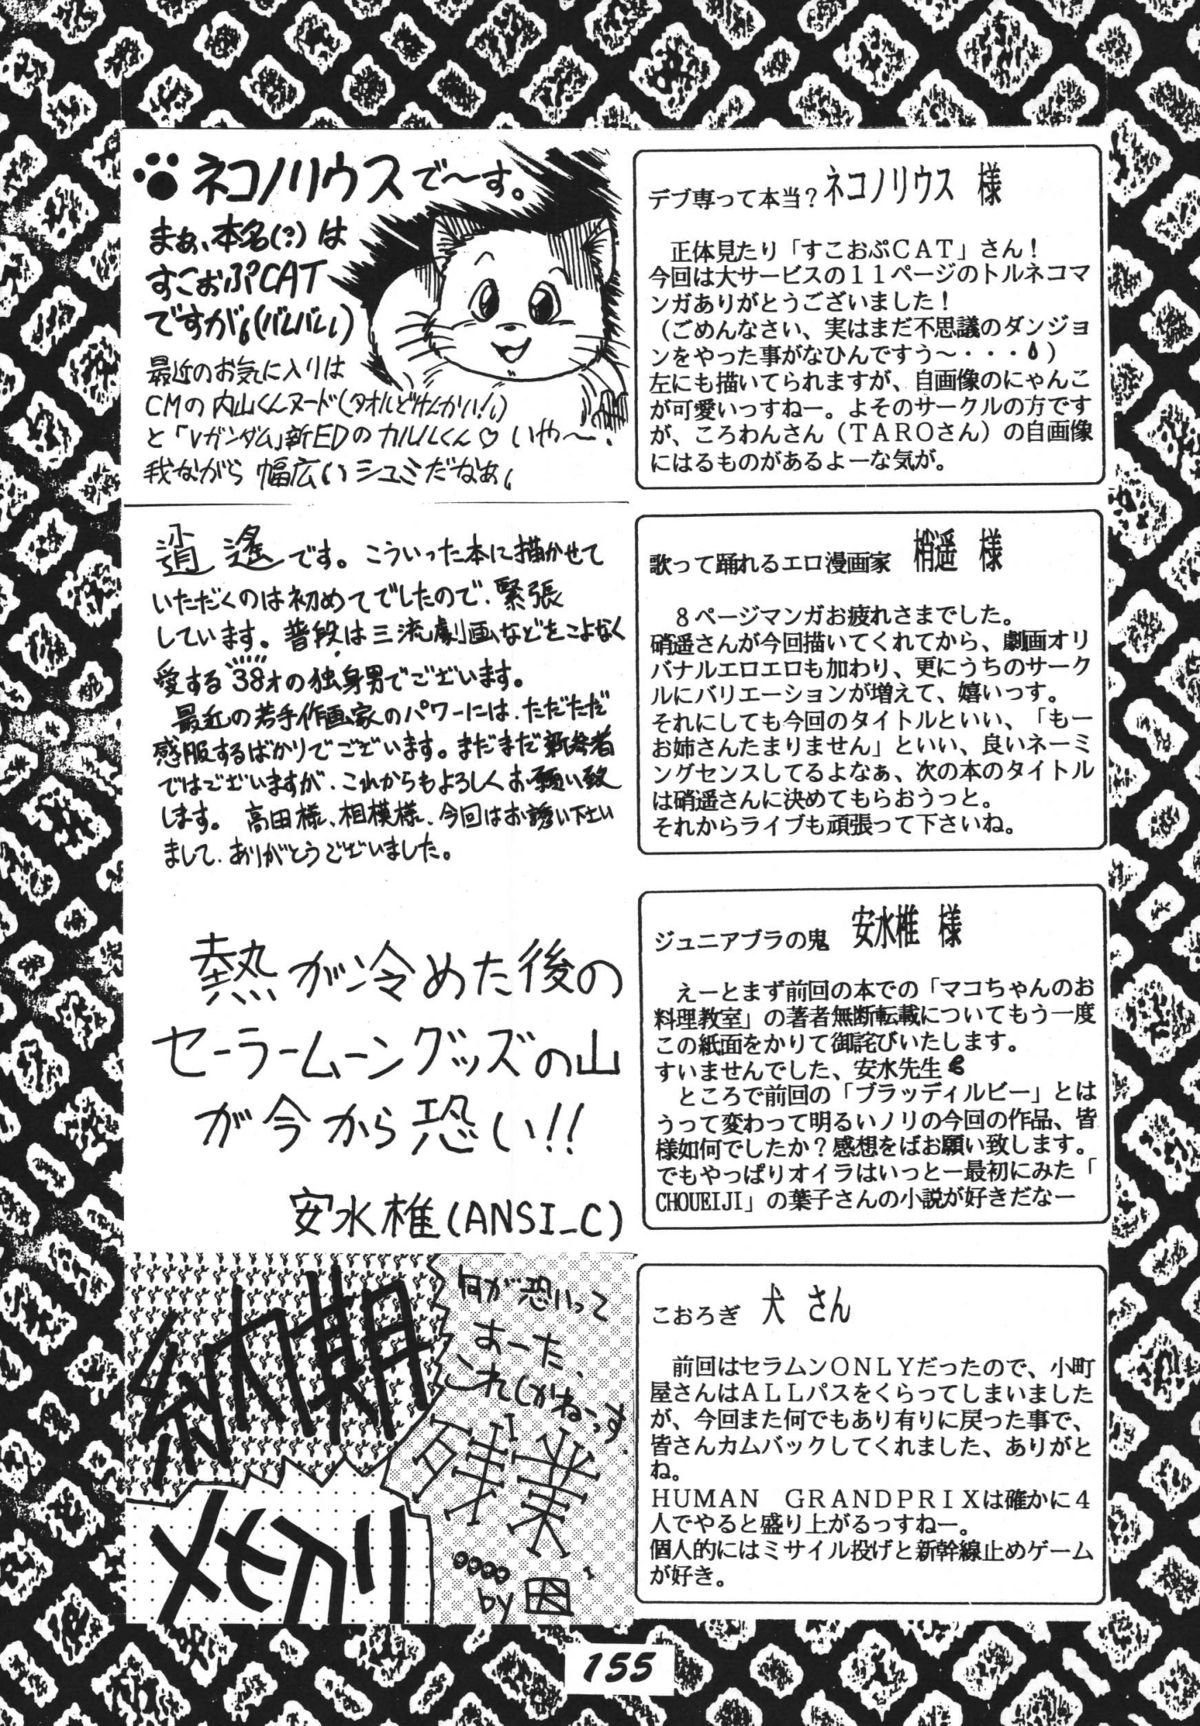 ネコノリウスで～す。
まぁ、本名(?)は
すこおぷCAT
ですが。(バレバレ)
最近のお気に入りは
CMの内山くんヌード(タオルどけんかい!)
と「Vガンダム」新EDのカルルくん♡いや～!
我ながら幅広いシュミだなぁ。
デブ専って本当？ネコノリウス 様
正体見たり「すこおぷＣＡＴ」さん！
今回は大サービスの１１ページのトルネコマ
ンガありがとうございました！
（ごめんなさい、実はまだ不思議のダンジョ
ンをやった事がなひんですう～・・・）
左にも描いてられますが、自画像のにゃんこ
が可愛いっすねー。よそのサークルの方です
が、ころわんさん（ＴＡＲＯさん）の自画像
にはるものがあるよーな気が。
逍遙です。こういった本に描かせて
いただくのは初めてでしたので、緊張
しています。普段は三流劇画などをこよなく
愛する38才の独身男でございます。
最近の若手作画家のパワーには、ただただ
感服するばかりでございます。まだまだ新参者
ではございますが、これからもよろしくお願い致
します。高田様、相模様、今回はお誘い下さい
まして、ありがとうございました。
歌って踊れるエロ漫画家 梢遥 様
８ページマンガお疲れさまでした。
硝遥さんが今回描いてくれてから、劇画オリ
バナルエロエロも加わり、更にうちのサーク
ルにバリエーションが増えて、嬉いっす。
それにしても今回のタイトルといい、「もー
お姉さんたまりません」といい、良いネーミ
ングセンスしてるよなぁ、次の本のタイトル
は硝遥さんに決めてもらおうっと。
それからライブも頑張って下さいね。
熱が冷めた後の
セーラームーングッズの山
が今から恐い!!
安水椎(ANSI_C)
ジュニアブラの鬼 安水椎 様
えーとまず前回の本での「マコちゃんのお
料理教室」の著者無断転載についてもう一度
この紙面をかりて御詫びいたします。
すいませんでした、安水先生
ところで前回の「ブラッディルビー」とは
うって変わって明るいノリの今回の作品、皆
様如何でしたか？感想をばお願い致します。
でもやっぱりオイラはいっとー最初にみた「
CHOUEIJI」の葉子さんの小説が好きだなー
幼期
何が恐いって
おーた、
これしかねーっす。
残業
by
こおろぎ 犬 さん
前回はセラムンＯＮＬＹだったので、小町
屋さんはＡＬＬパスをくらってしまいました
が、今回また何でもあり有りに戻った事で、
皆さんカムバックしてくれました、ありがと
ね。
ＨＵＭＡＮ　ＧＲＡＮＤＰＲＩＸは確かに４
人でやると盛り上がるっすねー。
個人的にはミサイル投げと新幹線止めゲーム
が好き。
155